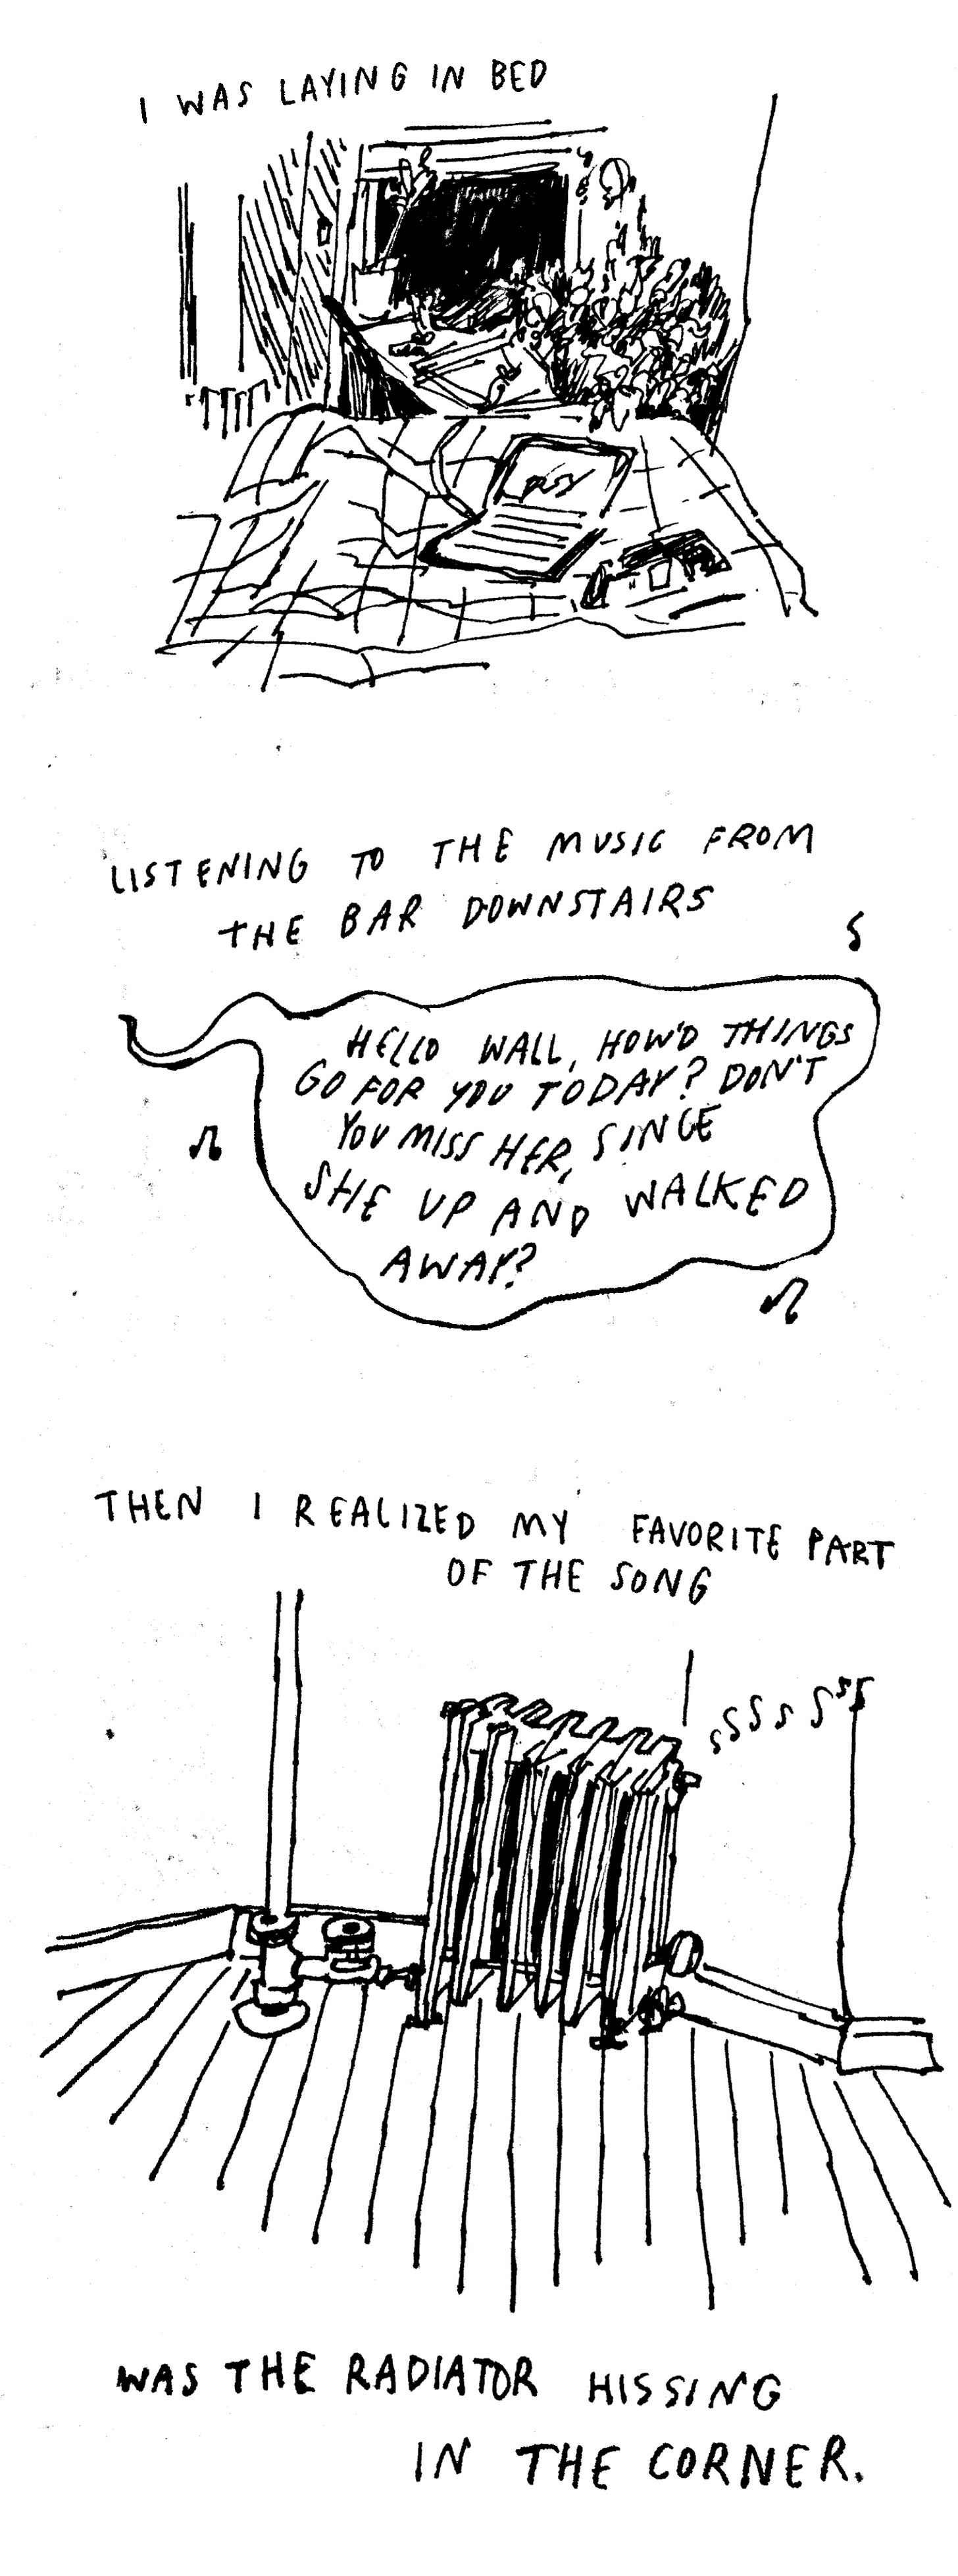 I WAS LAYING IN BED
LISTENING TO THE MUSIC FROM
THE BAR DOWNSTAIRS
HELLO WALL, HOW'D THINGS
GO FOR YOU TODAY? DON'T
YOU MISS HER, SINCE
SHE UP AND WALKED
AWAY?
THEN I REALIZED MY FAVORITE PART
OF THE SONG
SSSSSSS
WAS THE RADIATOR HISSING
IN THE CORNER.